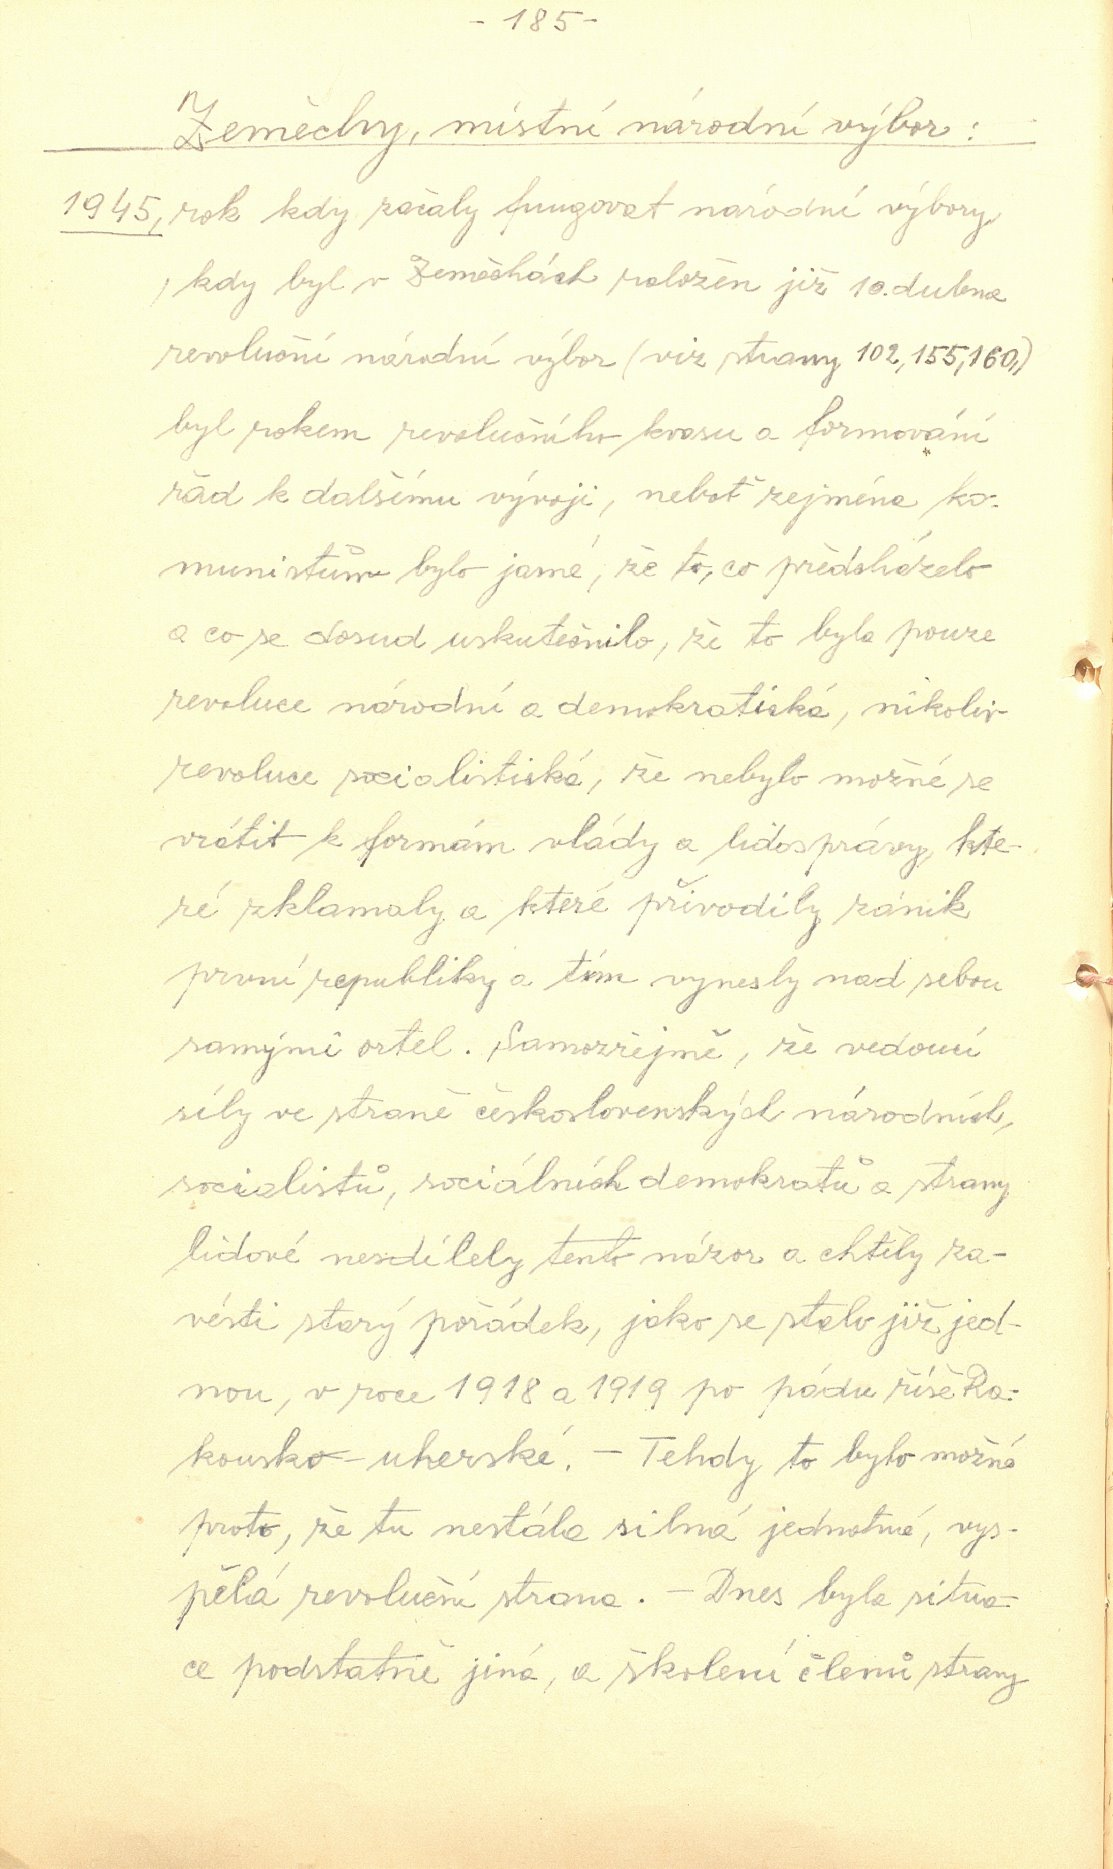 - 185 -
Zeměchy, místní národní výbor:
1945, rok kdy začaly fungovat národní výbory,
, kdy byl v Zeměchách založen již 10. dubna
revoluční národní výbor (viz strany 102, 155, 160,)
byl rokem revolučního kvasu a formování
řad k dalšímu vývoji, neboť zejména ko-
munistům bylo jasné, že to, co předcházelo
a co se dosud uskutečnilo, že to byla pouze
revoluce národní a demokratická, nikoliv
revoluce socialistická, že nebylo možné se
vrátit k formám vlády a lidosprávy, kte-
ré zklamaly a které přivodily zánik
první republiky a tím vynesly nad sebou
samými ortel. Samozřejmě, že vedoucí
síly ve straně československých národních,
socialistů, sociálních demokratů a strany
lidové nesdílely tento názor a chtěly za-
vésti starý pořádek, jako se stalo již jed-
nou, v roce 1918 a 1919 po pádu říše Ra-
kousko-uherské. - Tehdy to bylo možné
proto, že tu nestála silná jednotná, vys-
pělá revoluční strana. - Dnes byla situa-
ce podstatně jiná, a školení členů strany